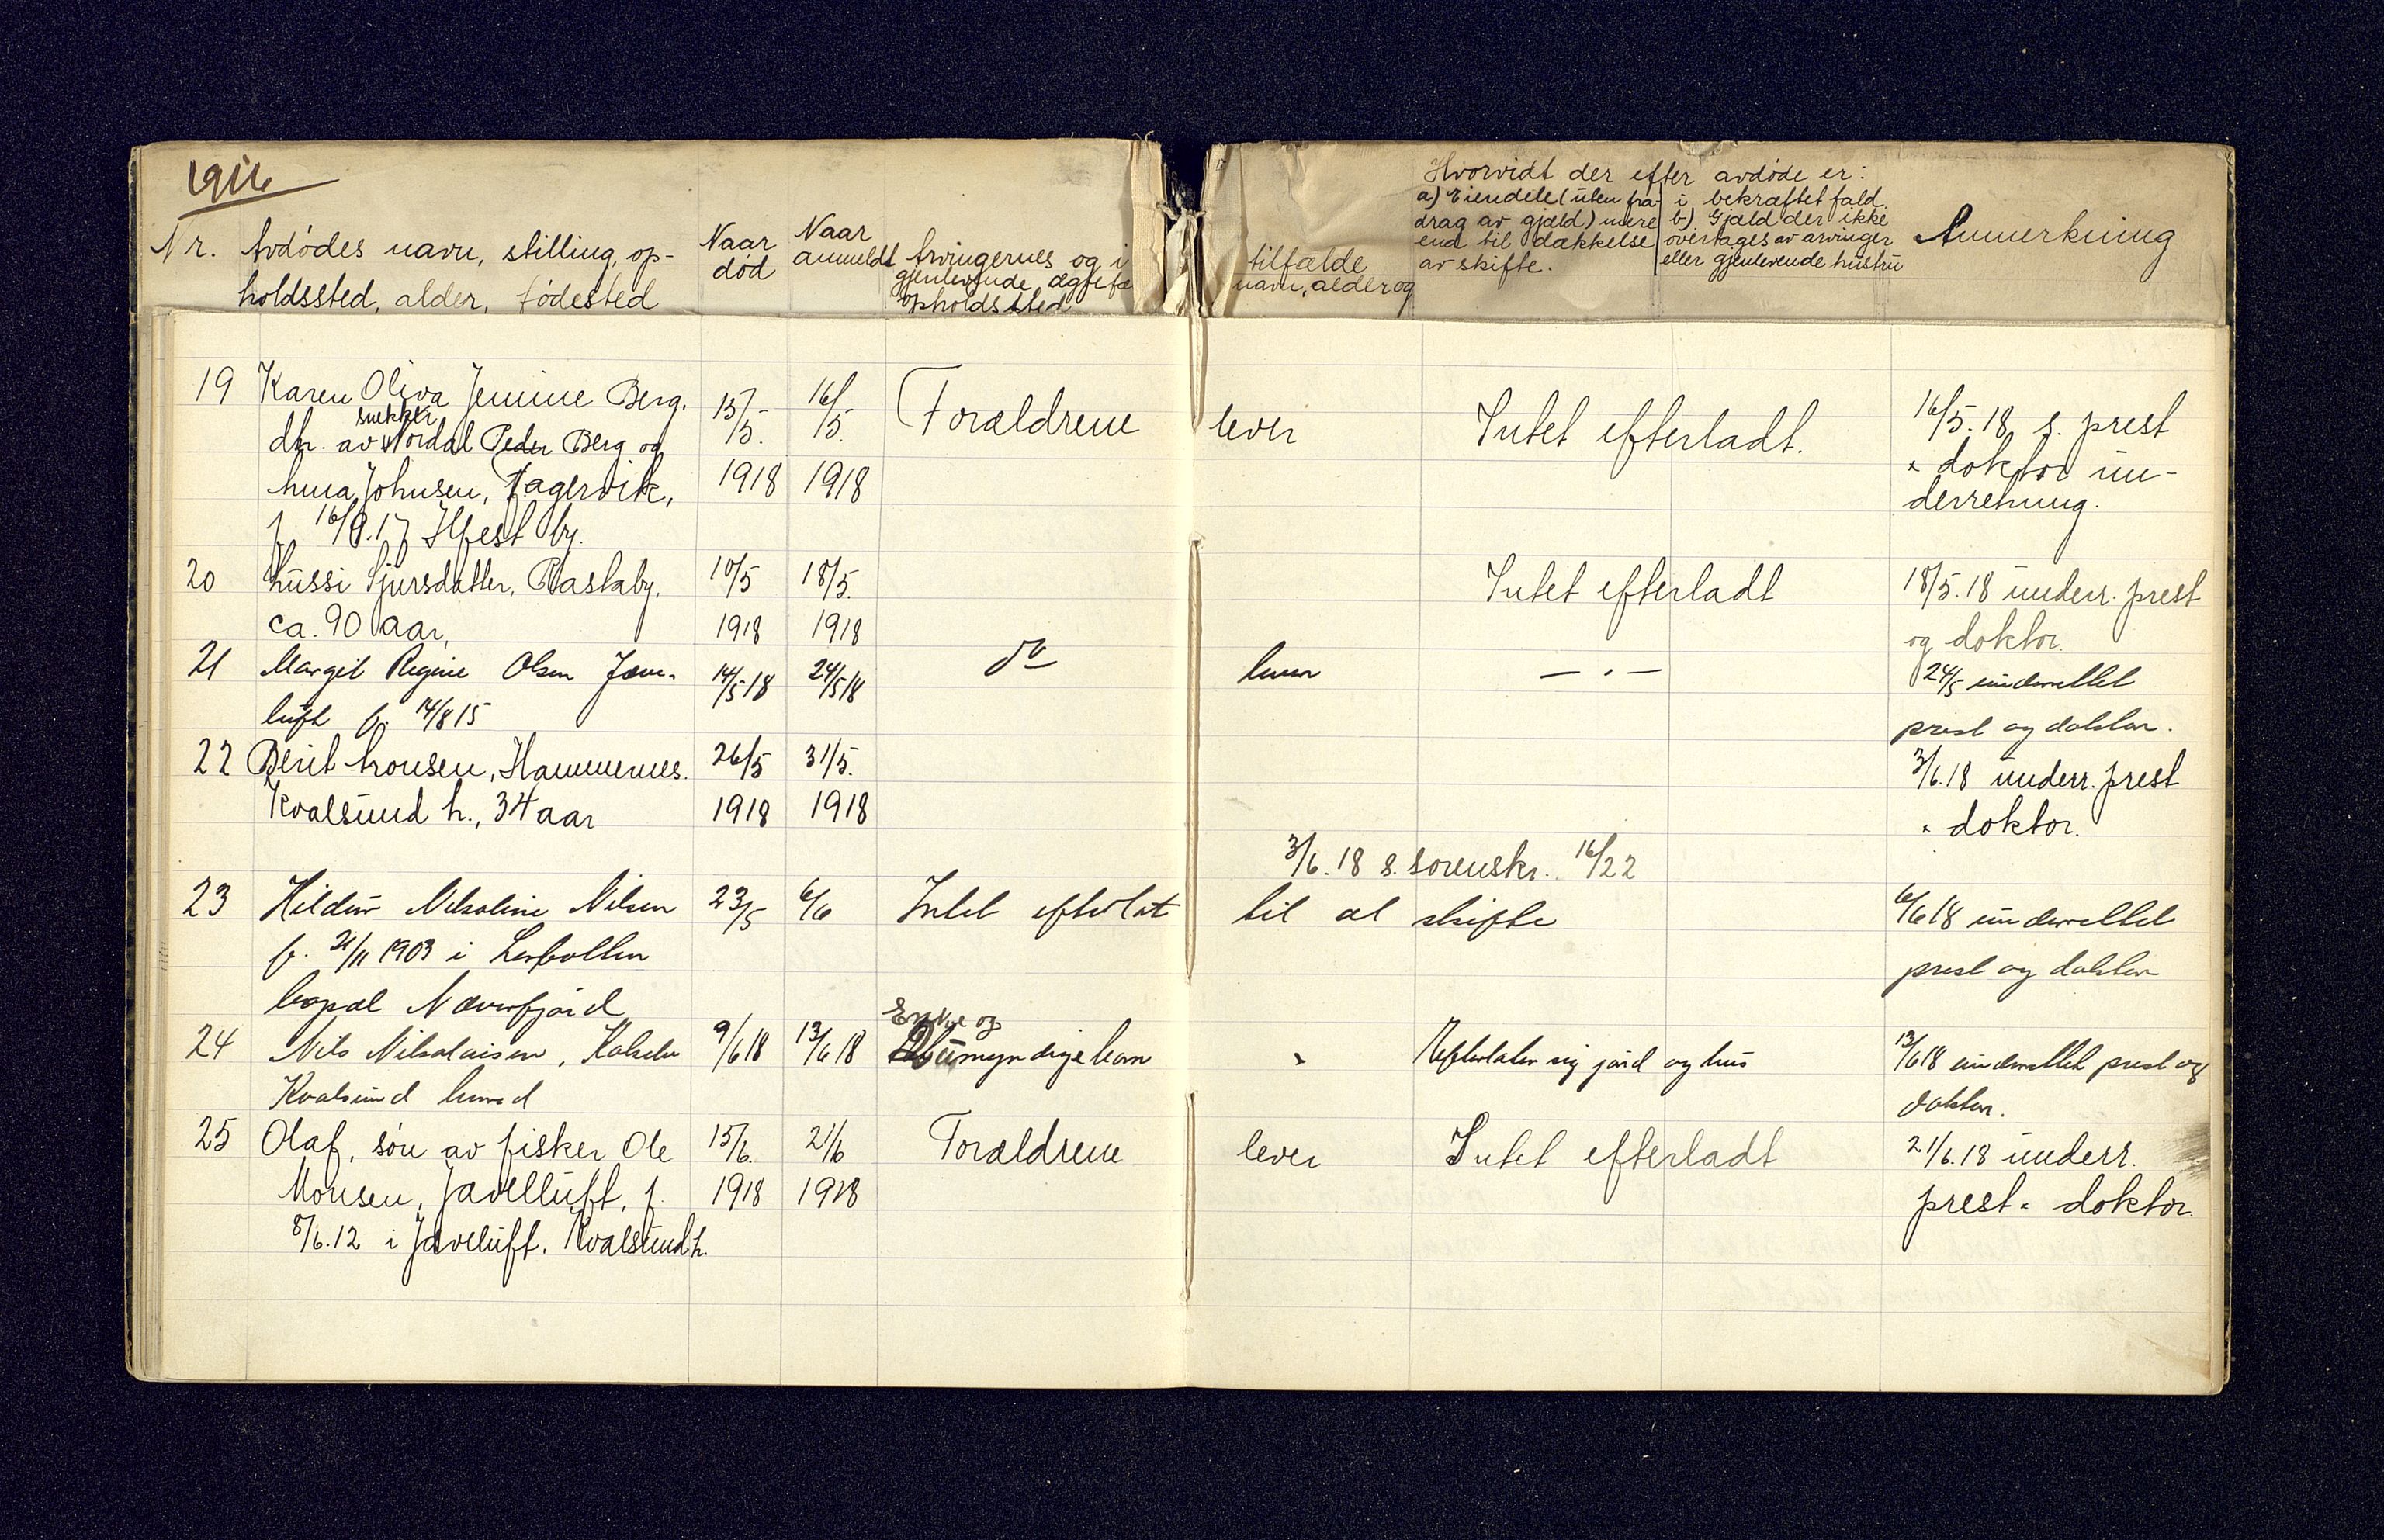 1916
Nr. Avdødes navn, stilling, op-
holdssted, alder, fødested
Naar
død
Naar
anmeldt
Arvingernes og i
gjenlevende ægtefæ
opholdssted
tilfælde
navn, alder og
Hvorvidt der efter avdøde er:
a) Eiendele (uten fra-
drag av gjæld) mere
end til dækkelse
av skifte.
i bekræftet fald.
b) Gjæld der ikke
overtages av arvinger
eller gjenlevende hustru
Anmerkning
19 Karen Oliva Jennine Berg.
snekker
dtr. av Nordal Peder Berg og
Johnsen, Fagervik,
f. 16/9.17 Hfest by.
15/5.
1918
16/5.
1918
Forældrene lever
Intet efterladt.
16/5.18 s. prest
" doktor un-
derretning.
20 Lussi Sjursdatter, Rastaby,
ca. 90 aar,
10/5
1918
18/5.
1918
Intet efterladt
18/5.18 underr. prest
og doktor.
21 Margit Regine Olsen Jæve-
luft f. 14/8 15
14/5 18
24/5 18
do lever
— . —
24/5 underrettet
prest og doktor.
22 Berit Aronsen, Hammernes.
Kvalsund h., 34 aar
26/5
1918
31/5.
1918
3/6.18 underr. prest
" doktor.
3/6.18 s. sorenskr. 16/22
23 Hildur Nikoline Nilsen
f. 21/11 1903 i Lerbotten
bopæl Næverfjord
23/5
6/6
Intet efterlat til at skifte
6/6 18 underrettet
prest og doktor
24 Nils Nikolaisen,
Kvalsund herred
9/6 18
13/6 18
Enke og
umyndige barn "
Efterlater sig jord og hus
13/6 18 underrettet prest og
doktor.
25 Olaf, søn av fisker Ole
Monsen, Jævelluft, f.
8/6.12 i Jæveluft. Kvalsund h.
15/6.
1918
21/6
1918
Forældrene lever
Intet efterladt
21/6.18 underr.
prest " doktor.